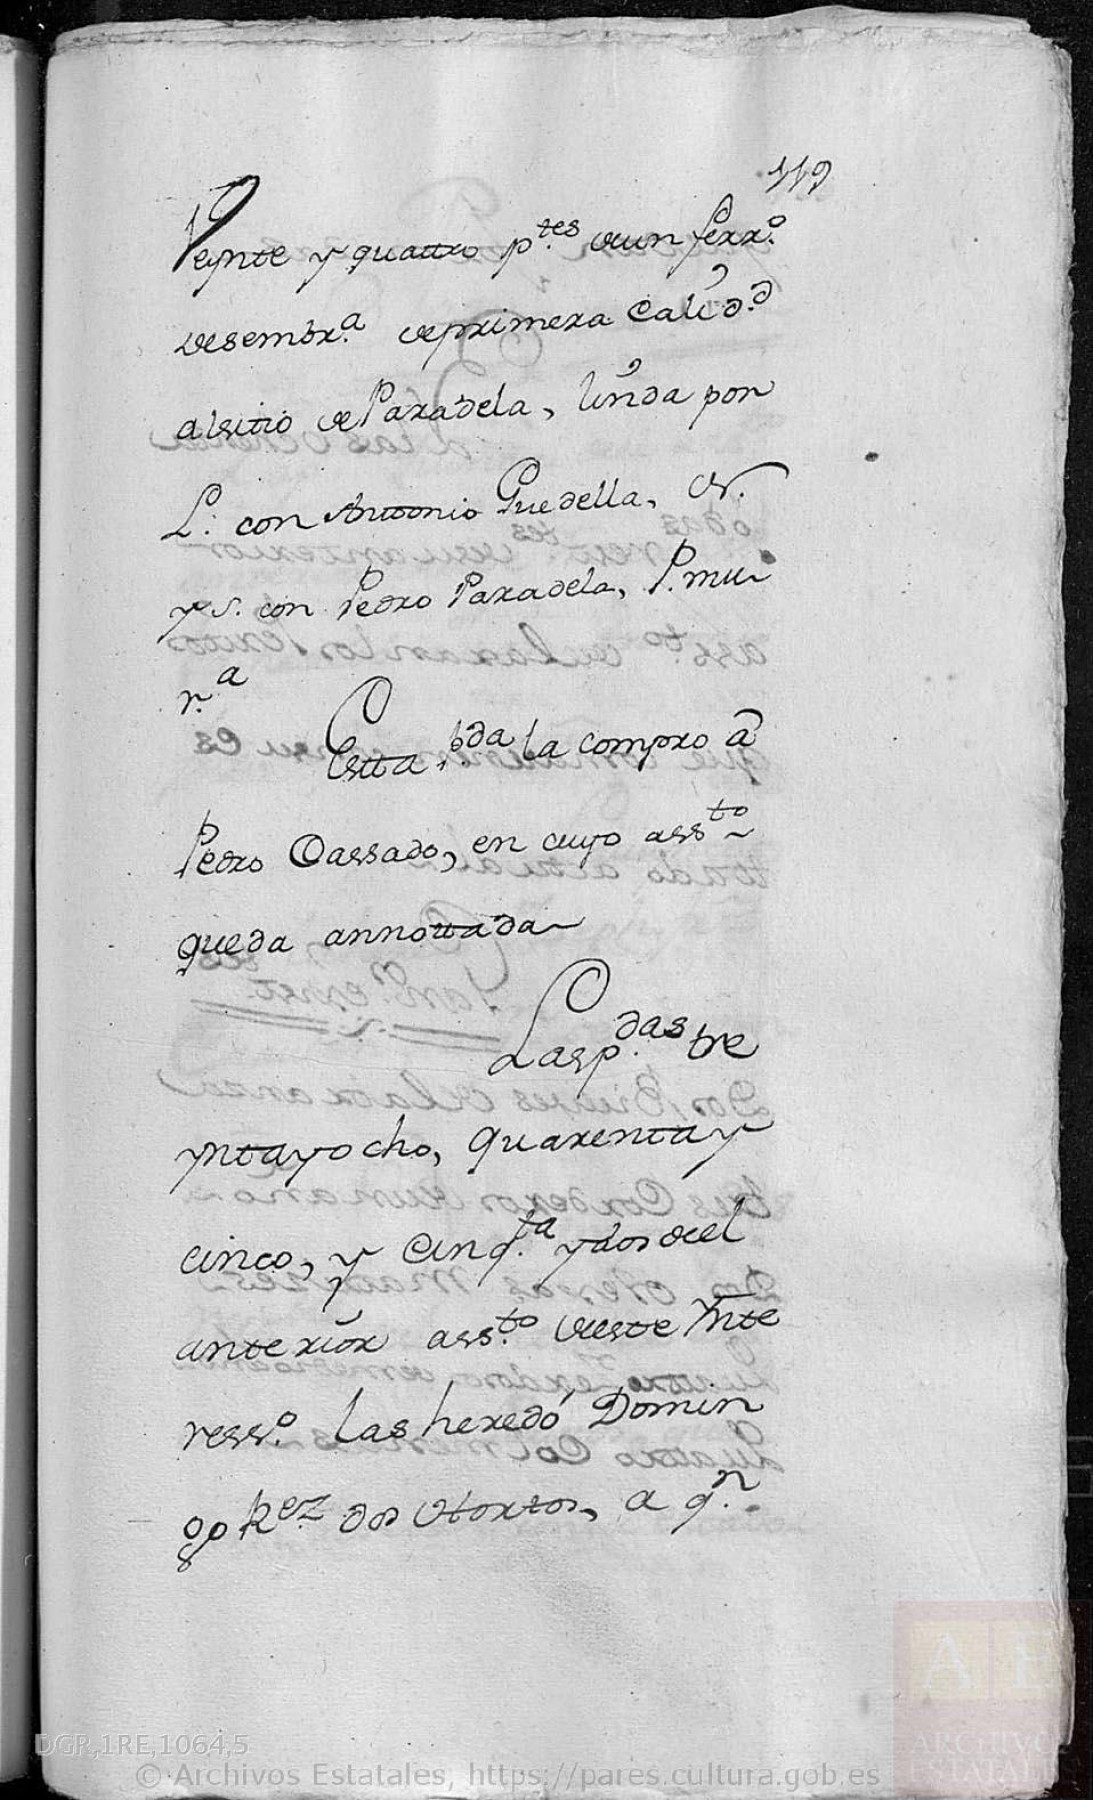 119
Veynte y quattro p.tes de un ferr.o
de sembr.a de primera Calid.d
al sitio de Paradela, linda por
L. con Antonio Guedella, N.
y S. con Pedro Paradela, P. mu
r.a
Esta p.da la compro â
Pedro Cassado, en cuyo ass.to
queda annottada
Las p.das tre
ynta y ocho, quarenta y
cinco, y Cinq.ta y dos del
anterior ass.to de este Ynte
ress.o las heredó Domin
go Rez dos Hortos, a q.n
DGR,1RE,1064,5
© Archivos Estatales, https://pares.cultura.gob.es
AE
ARCHIVOS
ESTATALES